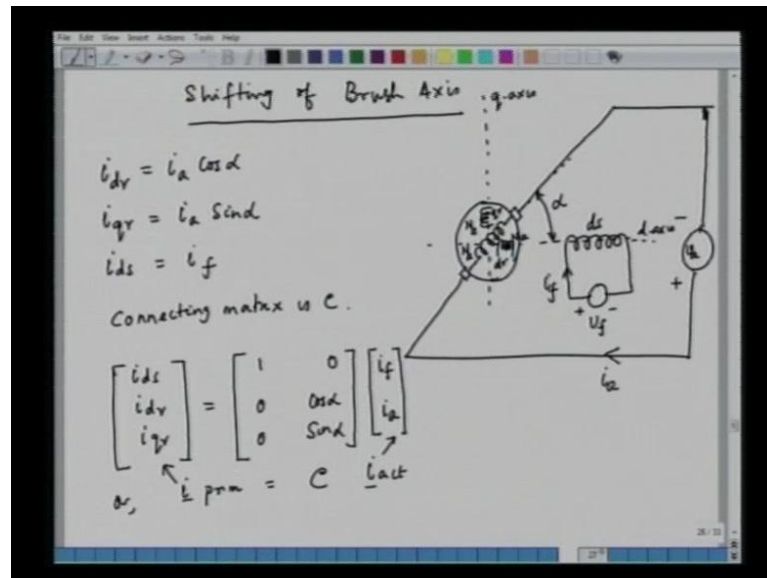 File Edit View Insert Actions Tools Help
Shifting of Brush Axis
q-axis
i_dr = i_a Cos α
i_qr = i_a Sin α
i_ds = i_f
Connecting matrix is C.
[i_ds i_dr i_qr] = [1 0 0 Cosα 0 Sinα] [i_f i_a]
or, i prm = C i act
α
ds
d-axis
dr
i_f
+ -
U_f
-
+
i_a
26/31